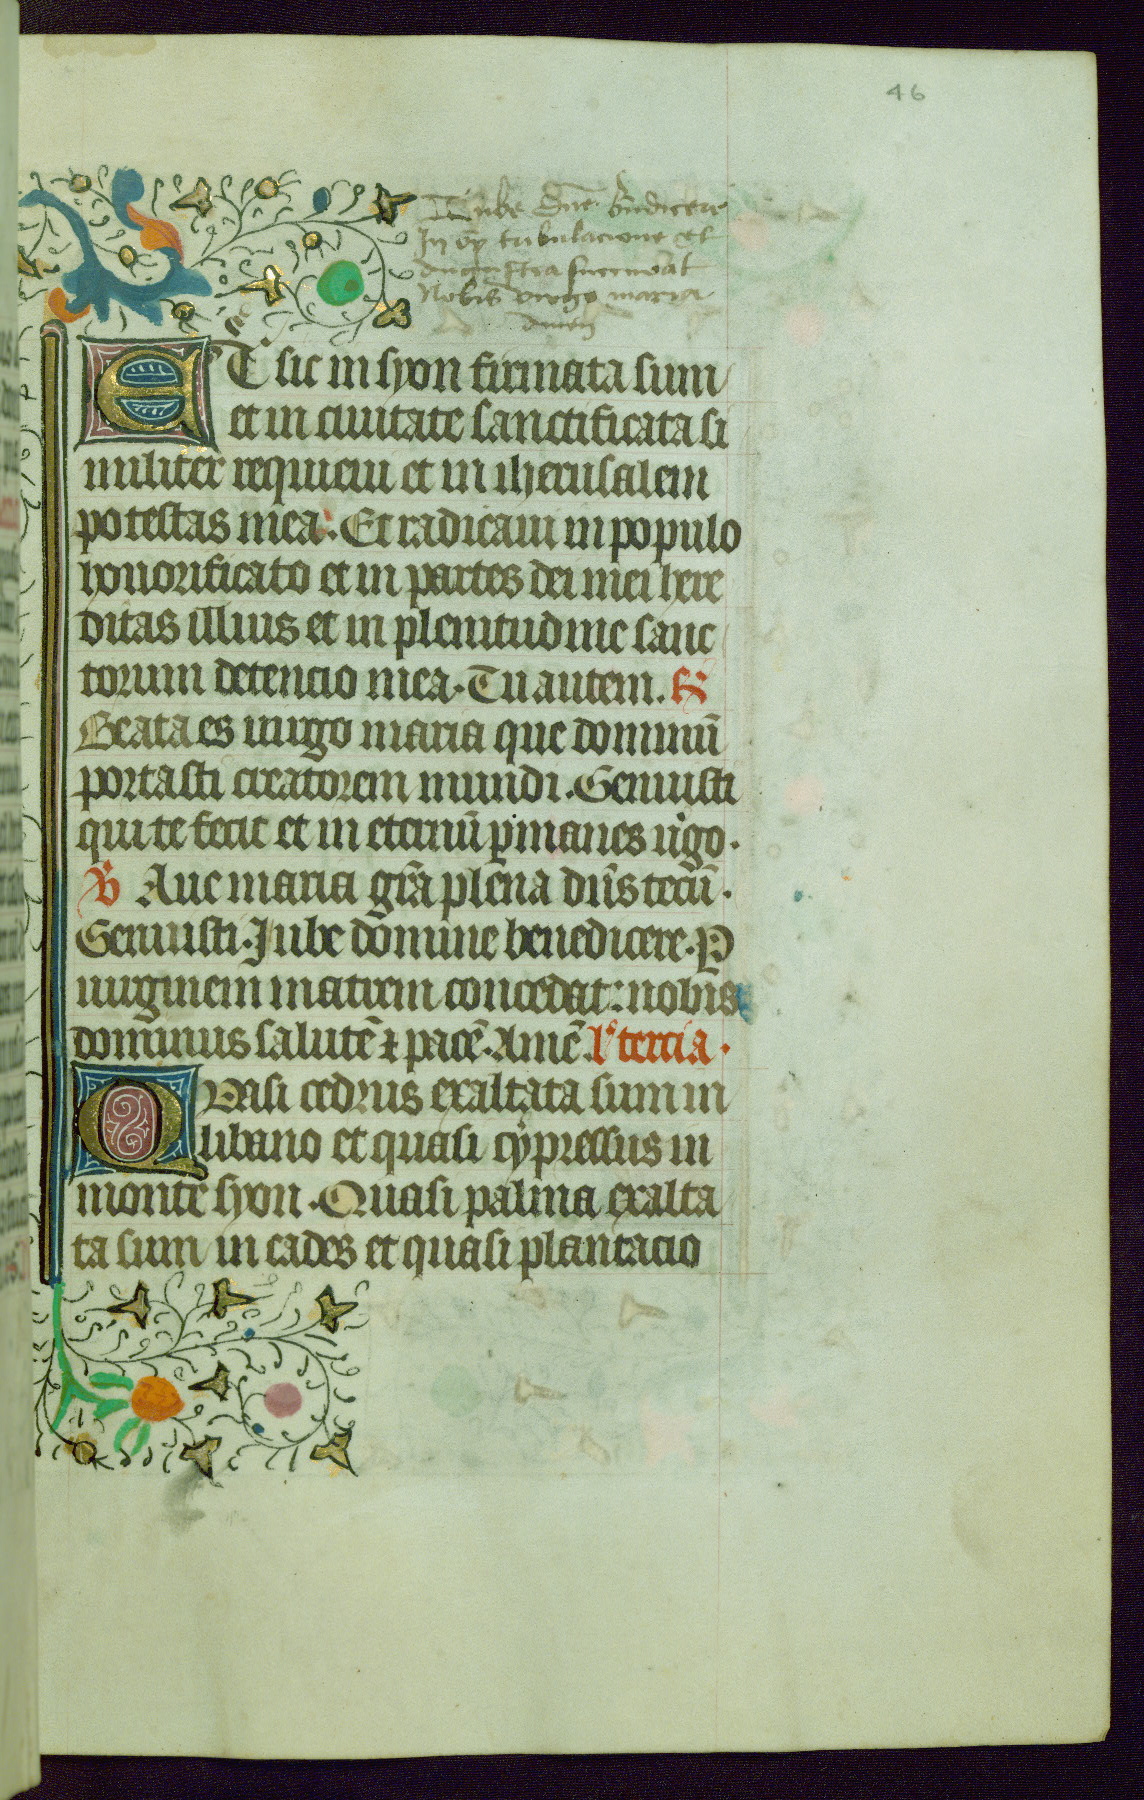 46
Iube dne bndicere
In oi tribulacione et
angustia succurrat
nobis virgo maria
amen
ET sic in syon firmata sum
et in ciuitate sanctificata si
militer requieui et in iherusalem
potestas mea. Et radicaui in populo
honorificato et in partes dei mei here
ditas illius et in plenitudine sanc
torum detencio mea. Tu autem. R
Beata es uirgo maria que dominū
portasti creatorem mundi. Genuisti
qui te fecit et in eternū ꝑmanes uirgo.
V Aue maria gr̄a plena dn̄s tecū.
Genuisti. Iube domine benedicere. P
uirginem matrem concedat: nobis
dominus salutē ⁊ pacē. Amē. l' tercia.
QVasi cedrus exaltata sum in
libano et quasi cypressus in
monte syon. Quasi palma exalta
ta sum in cades et quasi plantacio